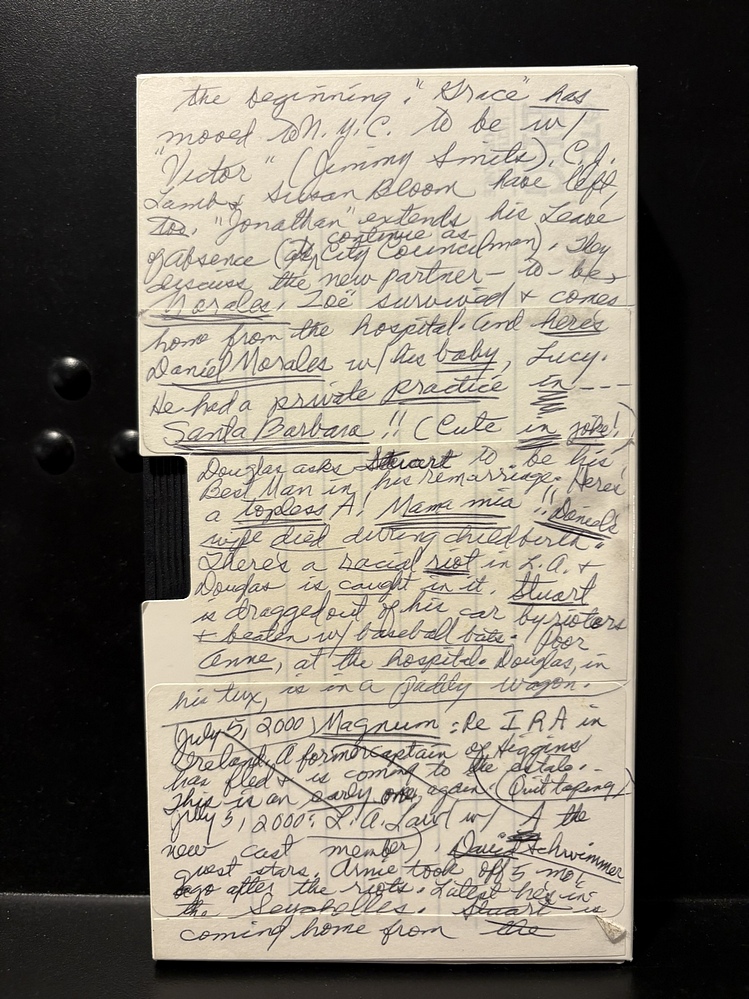 the beginning. "Grace" has
moved to N.Y.C. to be w/
"Victor" (Jimmy Smits). C.J.
Lamb & Susan Bloom have left,
too. "Jonathan" extends his Leave
of absence (to continue as City Councilman). They
discuss the new partner-to-be,
Morales. Zoë survived & comes
home from the hospital. And here's
Daniel Morales w/ his baby, Lucy.
He had a private practice in ---
Santa Barbara!! (Cute in joke!)
Douglas asks Stuart to be his
Best Man in his remarriage. Here's
a topless A! Mama mia!! Daniel's
wife died during childbirth."
There's a racial riot in L.A. &
Douglas is caught in it. Stuart
is dragged out of his car by rioters
& beaten w/ baseball bats. Poor
Anne, at the hospital. Douglas, in
his tux, is in a Paddy wagon.
July 5, 2000) Magnum: Re IRA in
Ireland. A former captain of Higgins'
has fled & is coming to the estate.
This is an early one, again. (Quit taping)
July 5, 2000: L.A. Law (w/ A the
new cast member). David Schwimmer
guest stars. Arnie took off 5 mo.
ago after the riots. Latest he's in
the Seychelles. Stuart is
coming home from the